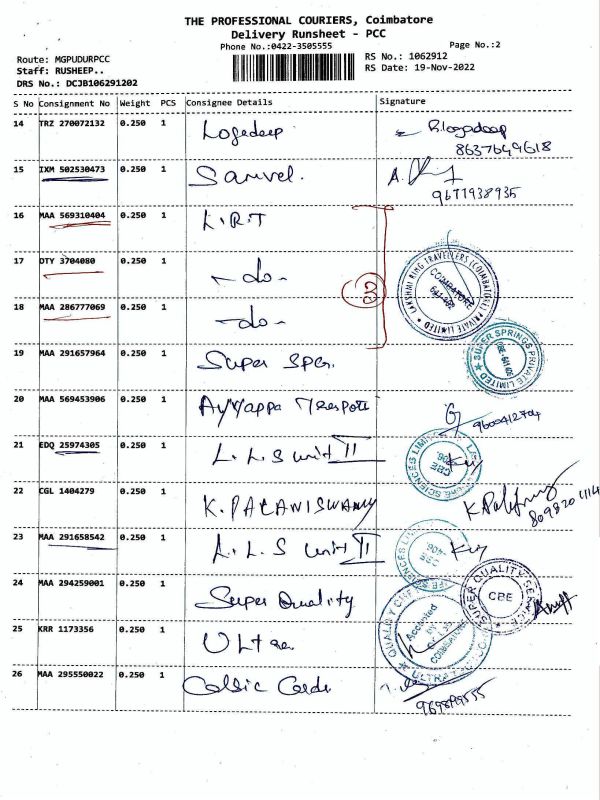 THE PROFESSIONAL COURIERS, Coimbatore
Delivery Runsheet - PCC
Phone No.:0422-3505555
Page No.:2
Route: MGPUDURPCC
RS No.: 1062912
Staff: RUSHEEP..
RS Date: 19-Nov-2022
DRS No.: DCJB106291202
S No Consignment No Weight PCS Consignee Details Signature
14 TRZ 270072132 0.250 1 Logadeep R.logadeep
8637649618
15 IXM 502530473 0.250 1 Samvel. A.
9677938935
16 MAA 569310404 0.250 1 L.R.T
17 DTY 3704080 0.250 1 -do- 3
18 MAA 286777069 0.250 1 -do-
LAKSHMI RING TRAVELLERS (COIMBATORE) PRIVATE LIMITED
COIMBATORE
641 402
19 MAA 291657964 0.250 1 Super Spg.
SUPER SPRINGS PRIVATE LIMITED
20 MAA 569453906 0.250 1 Ayyappa Transport
9600412704
21 EDQ 25974305 0.250 1 L.L.S unit II
SCIENCES LIMITED
CBE
22 CGL 1404279 0.250 1 K.PALANISWAMY
23 MAA 291658542 0.250 1 L.L.S Unit II
24 MAA 294259001 0.250 1 Super Quality
SUPER QUALITY SERVICE
CBE
25 KRR 1173356 0.250 1 Ultra
Accepted
COIMBATORE
26 MAA 295550022 0.250 1